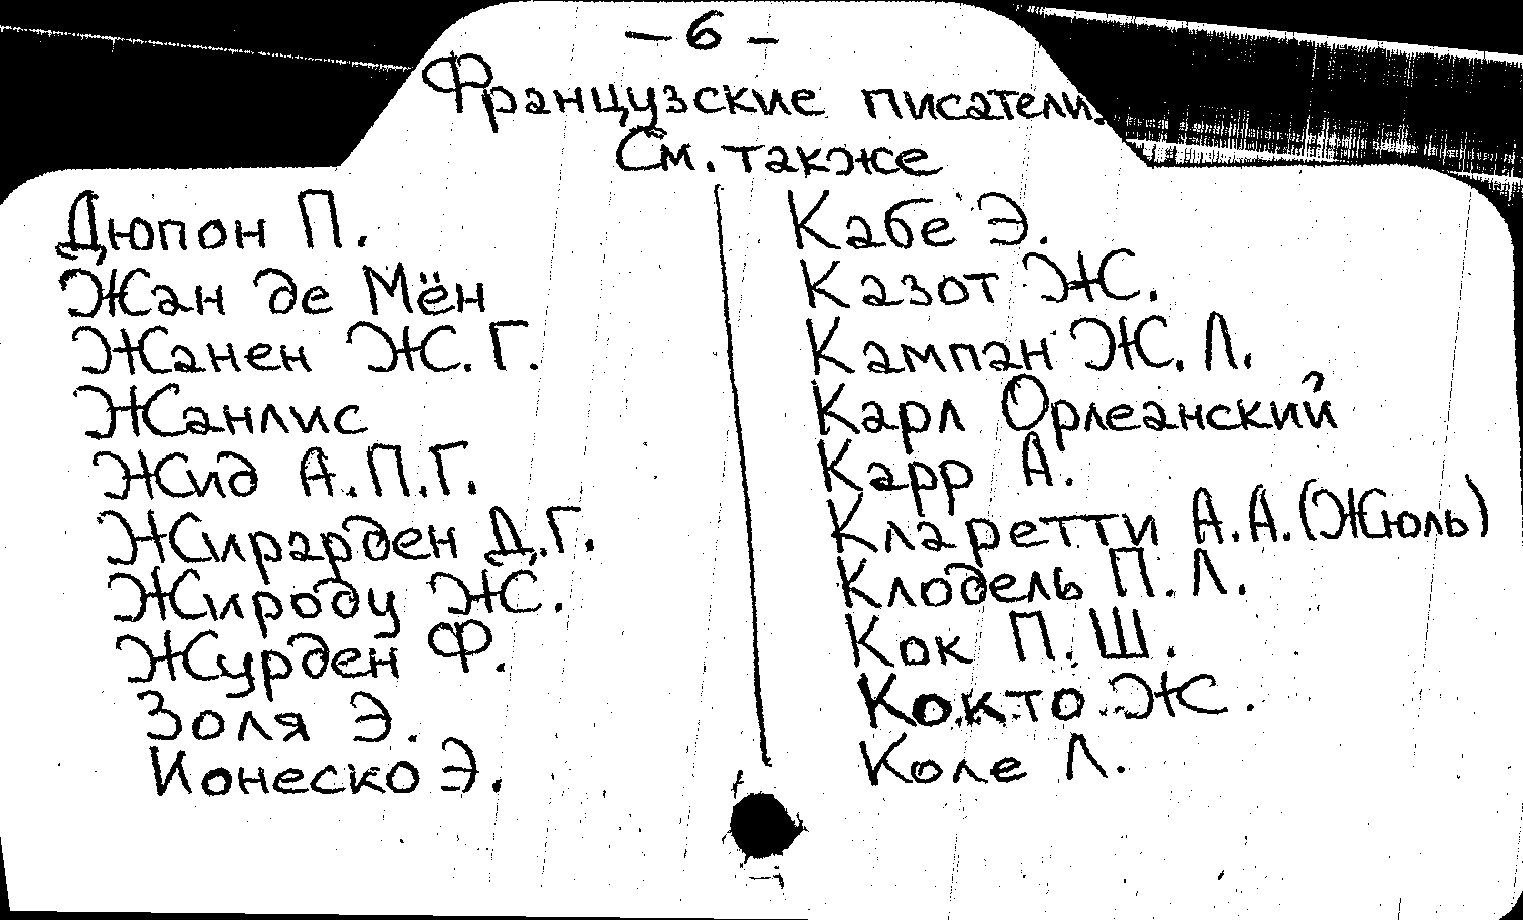 — 6 —
Французские писатели.
См. также
Дюпон П.
Жан де Мён
Жанен Ж. Г.
Жанлис
Жид А.П.Г.
Жирарден Д.Г.
Жироду Ж.
Журден Ф.
Золя Э.
Ионеско Э.
Кабе Э.
Казот Ж.
Кампан Ж. Л.
Карл Орлеанский
Карр А.
Кларетти А.А.(Жюль)
Клодель П. Л.
Кок П. Ш.
Кокто Ж.
Коле Л.